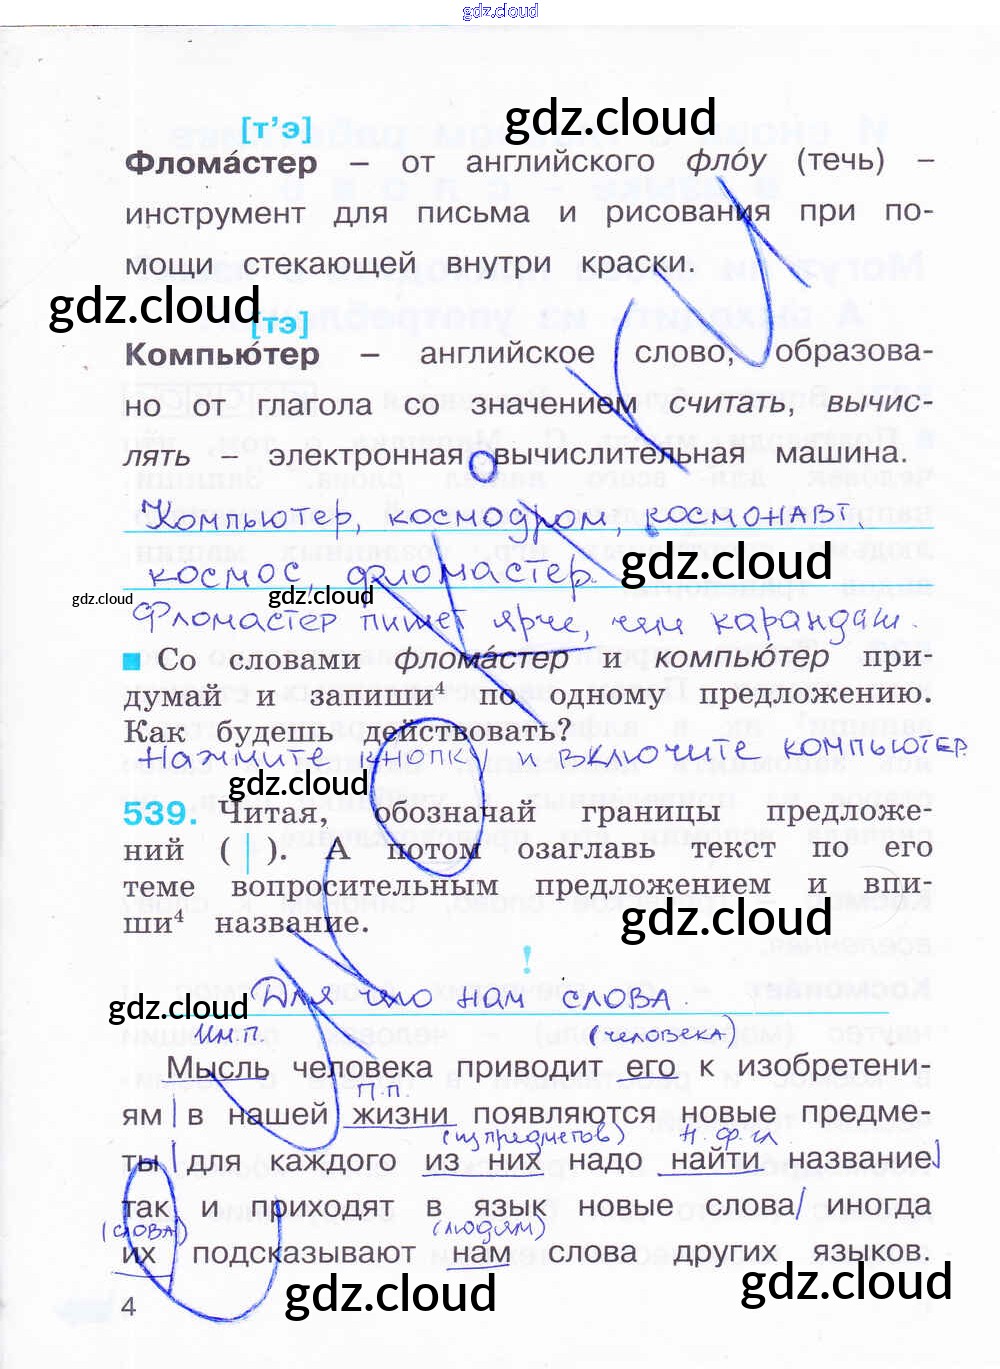 gdz.cloud
[т’э]
gdz.cloud
Флома́стер – от английского фло́у (течь) –
инструмент для письма и рисования при по-
мощи стекающей внутри краски.
gdz.cloud
[тэ]
Компью́тер – английское слово, образова-
но от глагола со значением считать, вычис-
лять – электронная вычислительная машина.
Компьютер, космодром, космонавт,
космос, фломастер.
gdz.cloud
gdz.cloud
gdz.cloud
Фломастер пишет ярче, чем карандаш.
Со словами флома́стер и компью́тер при-
думай и запиши⁴ по одному предложению.
Как будешь действовать?
Нажмите кнопку и включите компьютер
gdz.cloud
539. Читая, обозначай границы предложе-
ний ( | ). А потом озаглавь текст по его
теме вопросительным предложением и впи-
ши⁴ название.
gdz.cloud
!
Для что нам слова.
gdz.cloud
Им.п. (человека)
Мысль человека приводит его к изобретени-
П.п.
ям | в нашей жизни появляются новые предме-
(из предметов) Н.ф.гл
ты | для каждого из них надо найти название |
так и приходят в язык новые слова | иногда
(слова) (людям)
их подсказывают нам слова других языков.
gdz.cloud
gdz.cloud
4